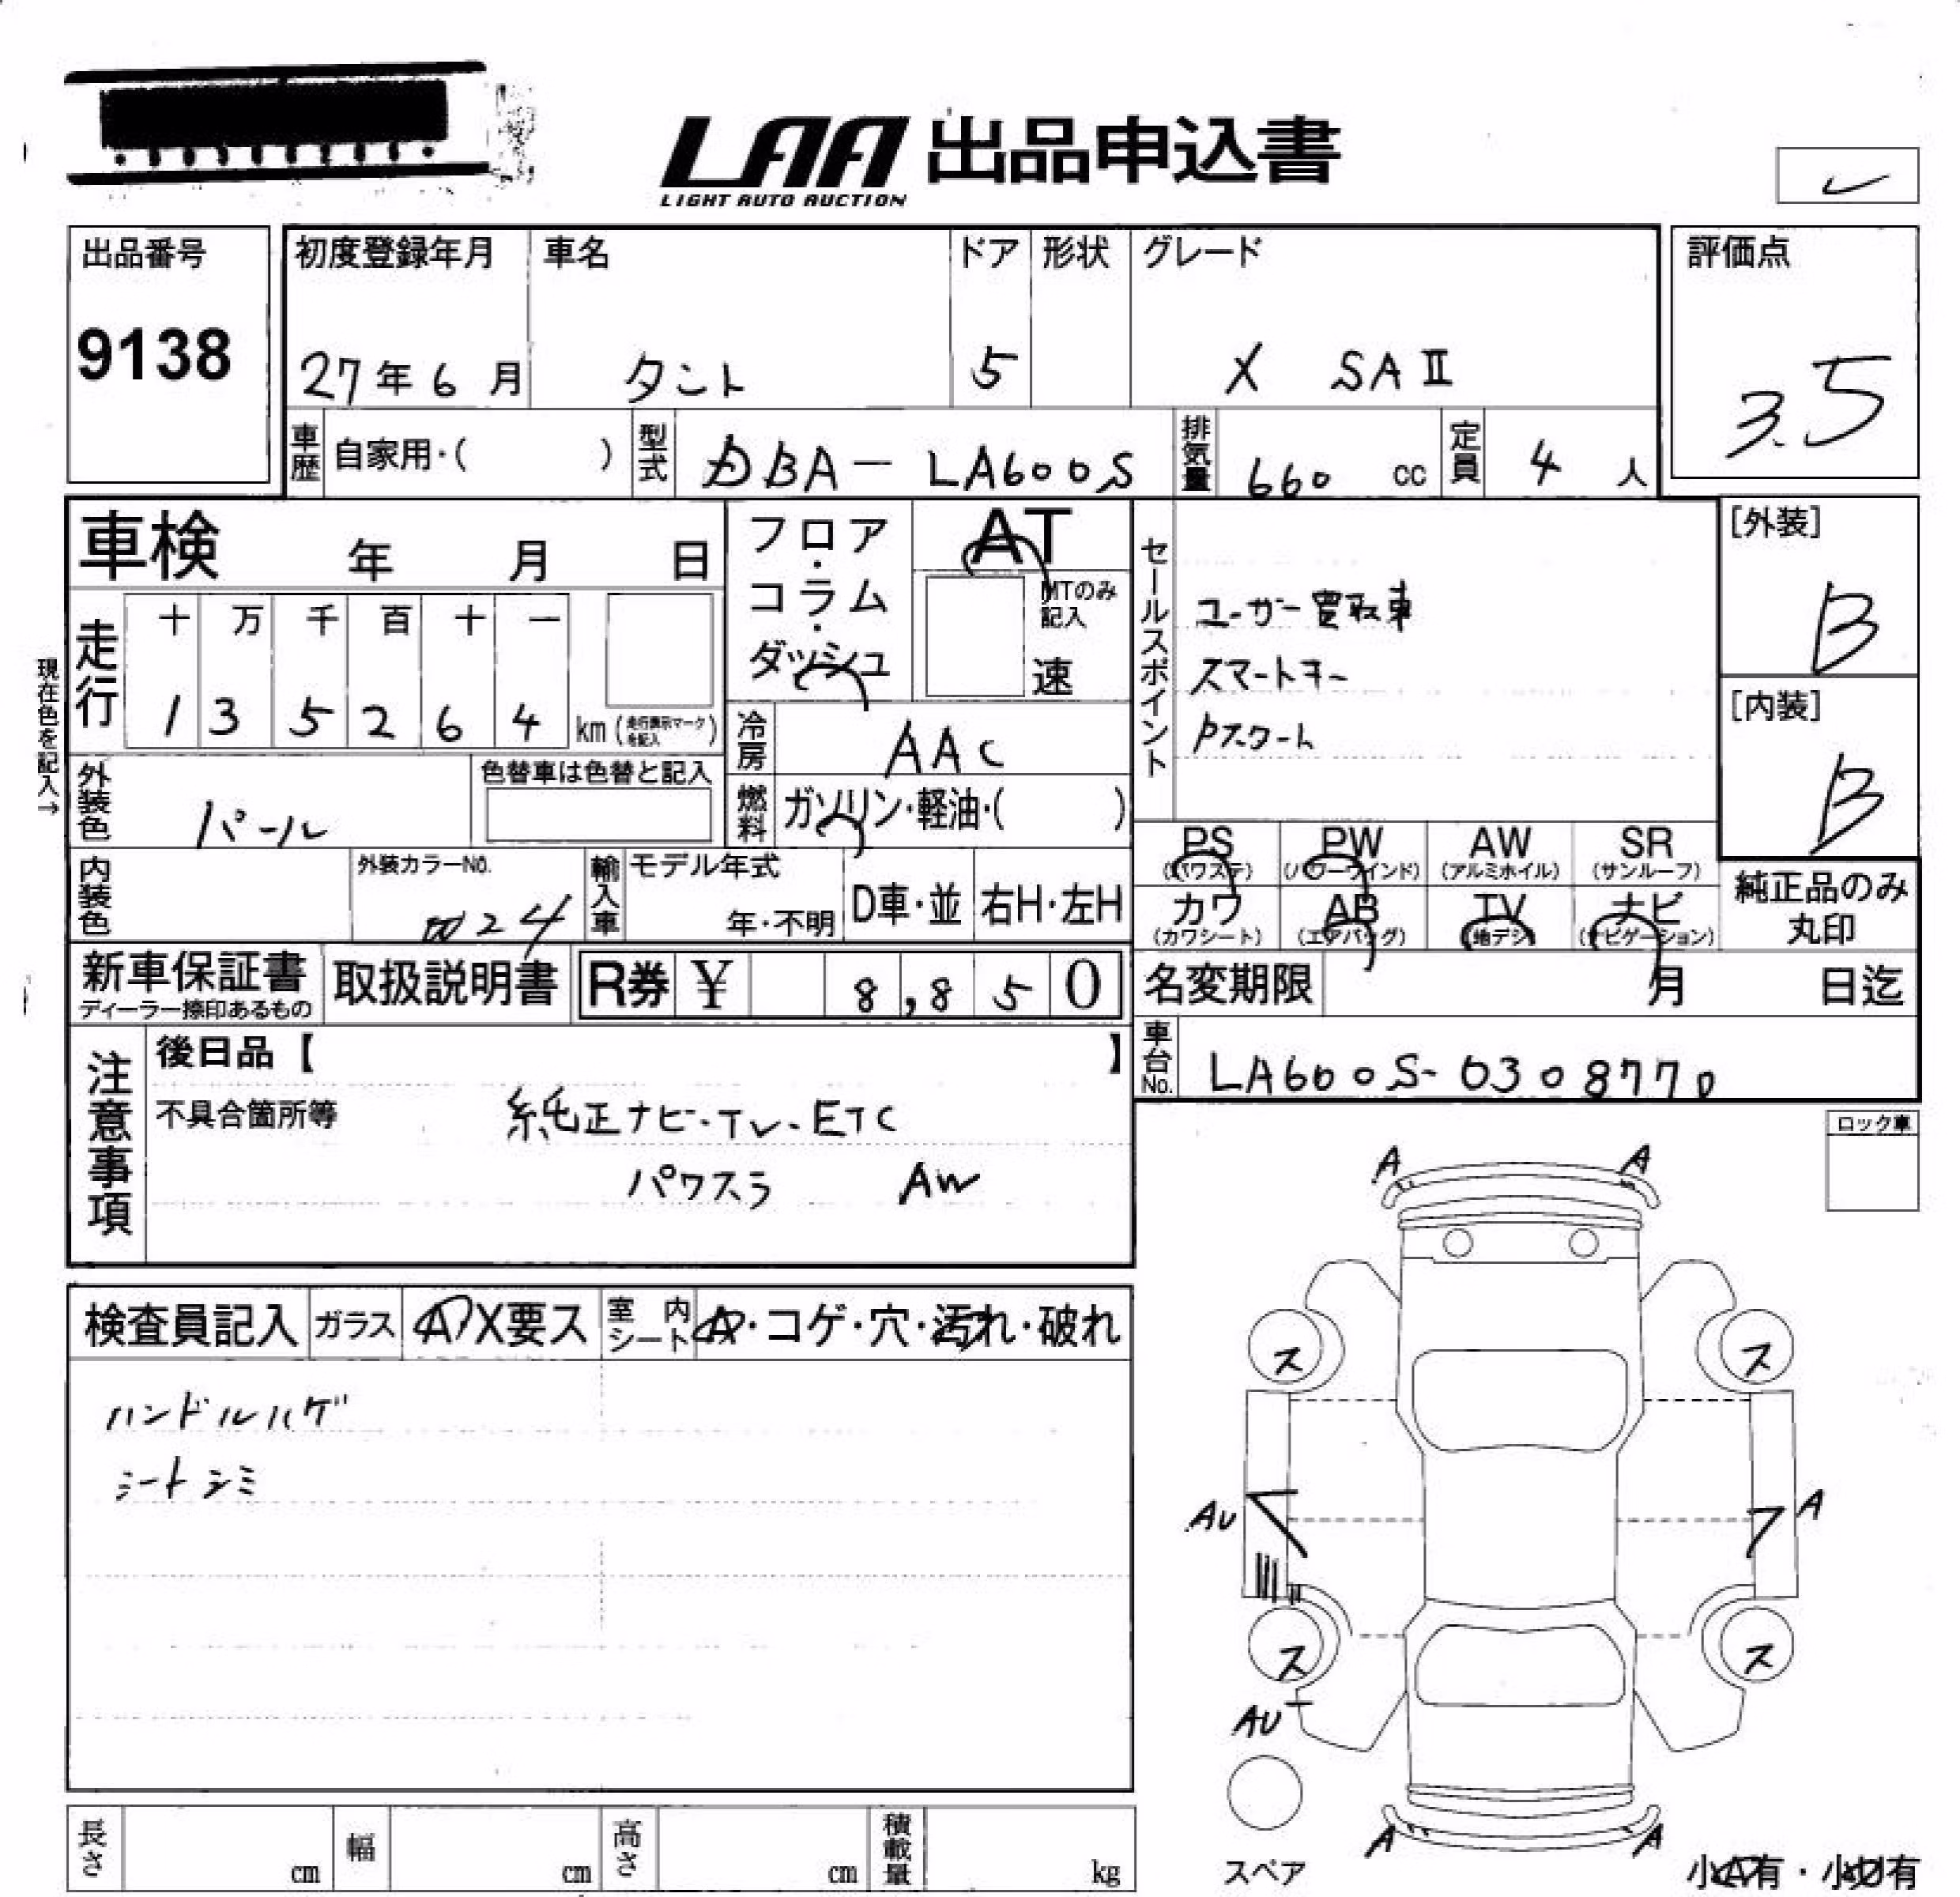 LAA 出品申込書
LIGHT AUTO AUCTION
出品番号
9138
初度登録年月 車名 ドア 形状 グレード
27年6月 タント 5 X SAⅡ
評価点
3.5
車歴 自家用・( ) 型式 DBA-LA600S 排気量 660 cc 定員 4 人
車検 年 月 日
フロア・コラム・ダッシュ
AT
MTのみ記入
速
セールスポイント
ユーザー買取車
スマートキー
Pスタート
[外装]
B
[内装]
B
現在色を記入→
走行 十 万 千 百 十 一
1 3 5 2 6 4 km (走行表示マークを記入)
冷房 AAC
外装色 パール
色替車は色替と記入
燃料 ガソリン・軽油・( )
PS (パワステ) PW (パワーウインド) AW (アルミホイル) SR (サンルーフ)
カワ (カワシート) AB (エアバッグ) TV (地デジ) ナビ (ナビゲーション)
純正品のみ丸印
内装色
外装カラーNO.
W24
輸入車 モデル年式
年・不明 D車・並 右H・左H
新車保証書
ディーラー捺印あるもの
取扱説明書 R券 ¥ 8,850
名変期限 月 日迄
車台No. LA600S-0308770
注意事項
後日品【 】
不具合箇所等 純正ナビ・TV・ETC
パワスラ AW
ロック車
検査員記入 ガラス A X要ス 室内シート A・コゲ・穴・汚れ・破れ
ハンドルハゲ
シートシミ
A A
ス ス
AU A
ス ス
AU
A A
スペア
小A有・小U有
長さ cm 幅 cm 高さ cm 積載量 kg